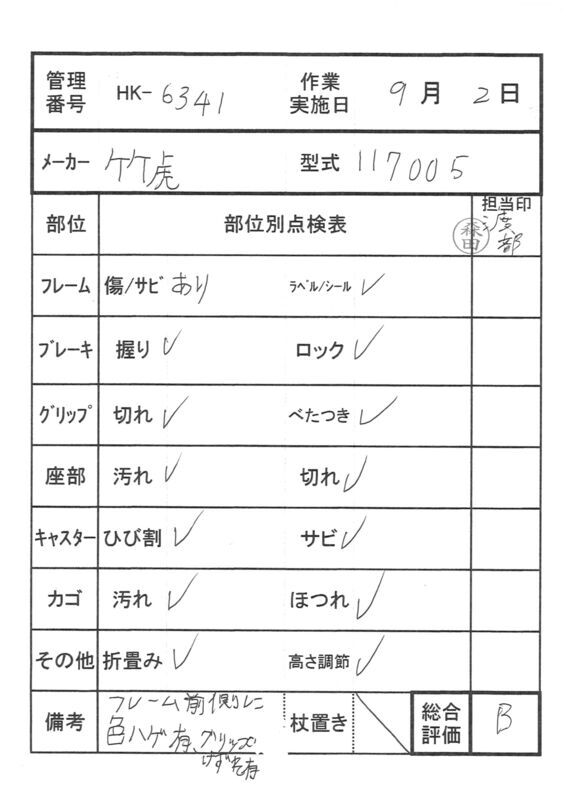 管理番号 HK-6341 作業実施日 9月 2日
メーカー ケケ虎 型式 117005
部位 部位別点検表 担当印
森田 渡部
フレーム 傷/サビ あり ラベル/シール ✓
ブレーキ 握り ✓ ロック ✓
グリップ 切れ ✓ べたつき ✓
座部 汚れ ✓ 切れ ✓
キャスター ひび割 ✓ サビ ✓
カゴ 汚れ ✓ ほつれ ✓
その他 折畳み ✓ 高さ調節 ✓
備考 フレーム前側に 杖置き 総合評価 B
色ハゲ有、グリップ
けずれ有